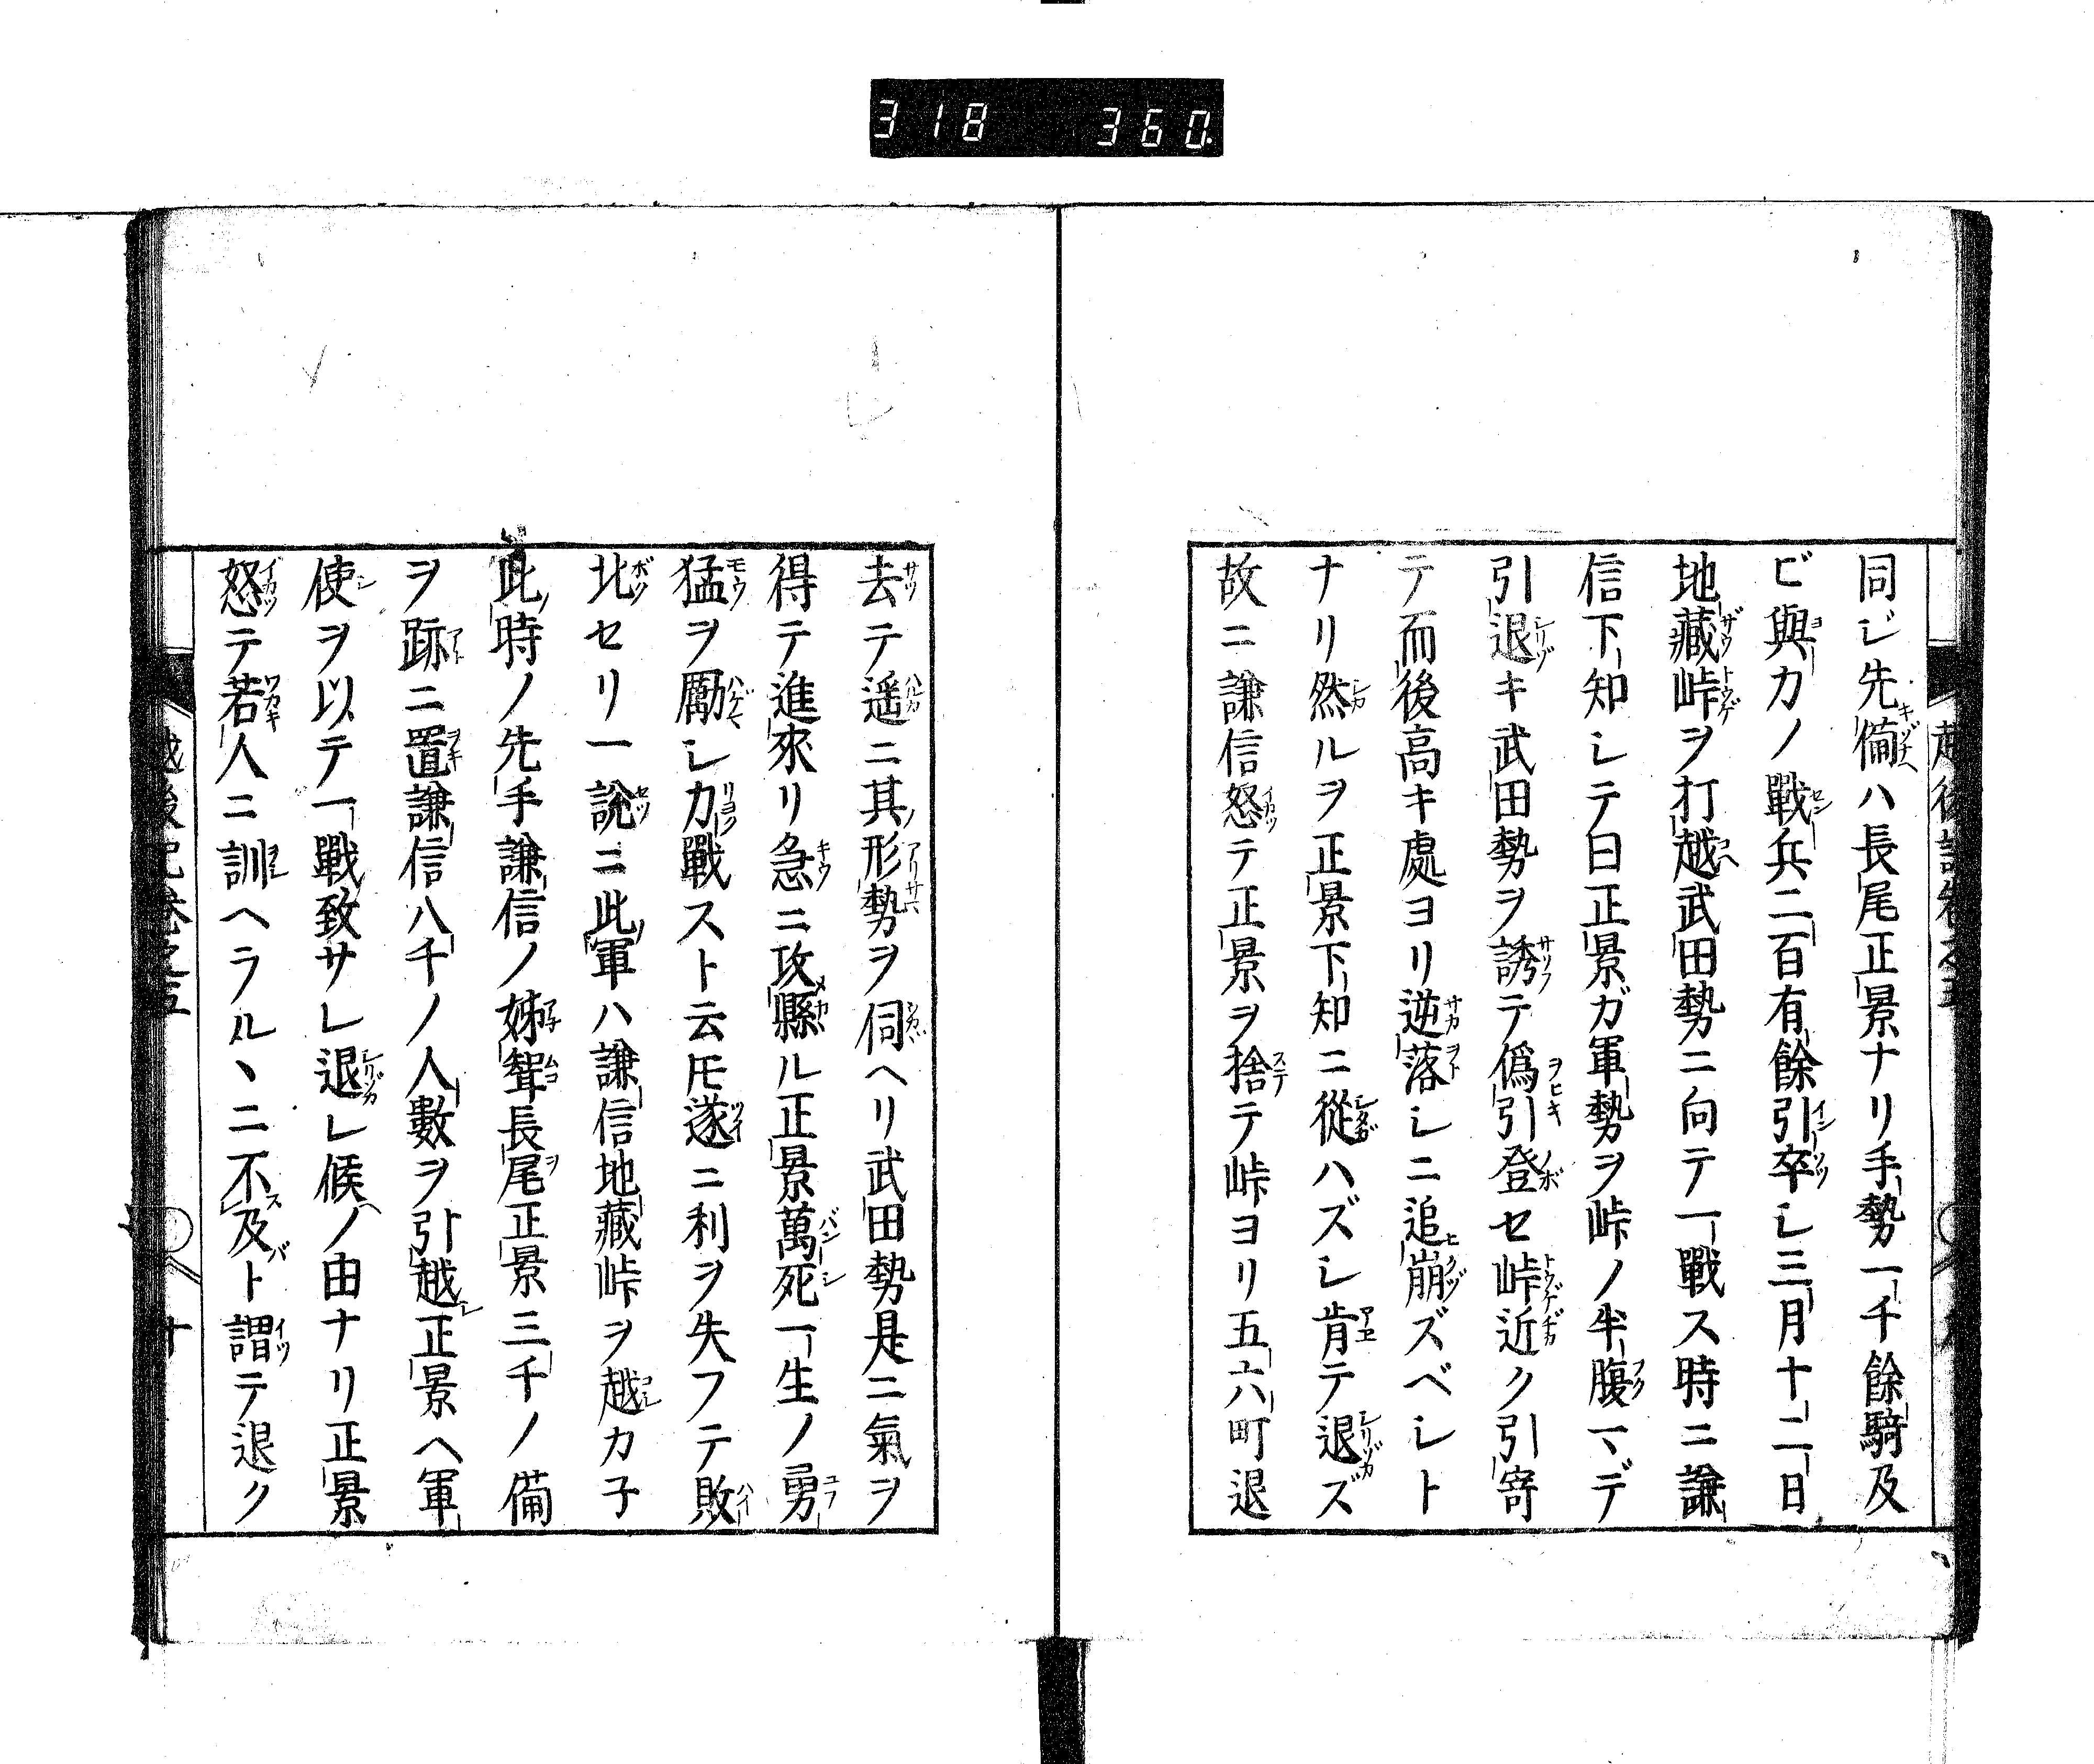 318 360.
同ジ先備ハ長尾正景ナリ手勢一千餘騎及
ビ與力ノ戰兵二百有餘引卒シ三月十二日
地藏峠ヲ打越武田勢ニ向テ一戰ス時ニ謙
信下知シテ曰正景ガ軍勢ヲ峠ノ半腹マデ
引退キ武田勢ヲ誘テ僞引登セ峠近ク引寄
テ而後高キ處ヨリ逆落シニ追崩ズベシト
ナリ然ルヲ正景下知ニ從ハズシ肯テ退ズ
故ニ謙信怒テ正景ヲ捨テ峠ヨリ五六町退
去テ遥ニ其形勢ヲ伺ヘリ武田勢是ニ氣ヲ
得テ進來リ急ニ攻縣ル正景萬死一生ノ勇
猛ヲ勵シ力戰スト云𪜈遂ニ利ヲ失フテ敗
北セリ一説ニ此軍ハ謙信地藏峠ヲ越カ子
此時ノ先手謙信ノ姊聟長尾正景三千ノ備
ヲ跡ニ置謙信八千ノ人數ヲ引越正景ヘ軍
使ヲ以テ一戰致サレ退レ候ヘノ由ナリ正景
怒テ若人ニ訓ヘラルヽニ不及ト謂テ退ク
越後記卷之五
十